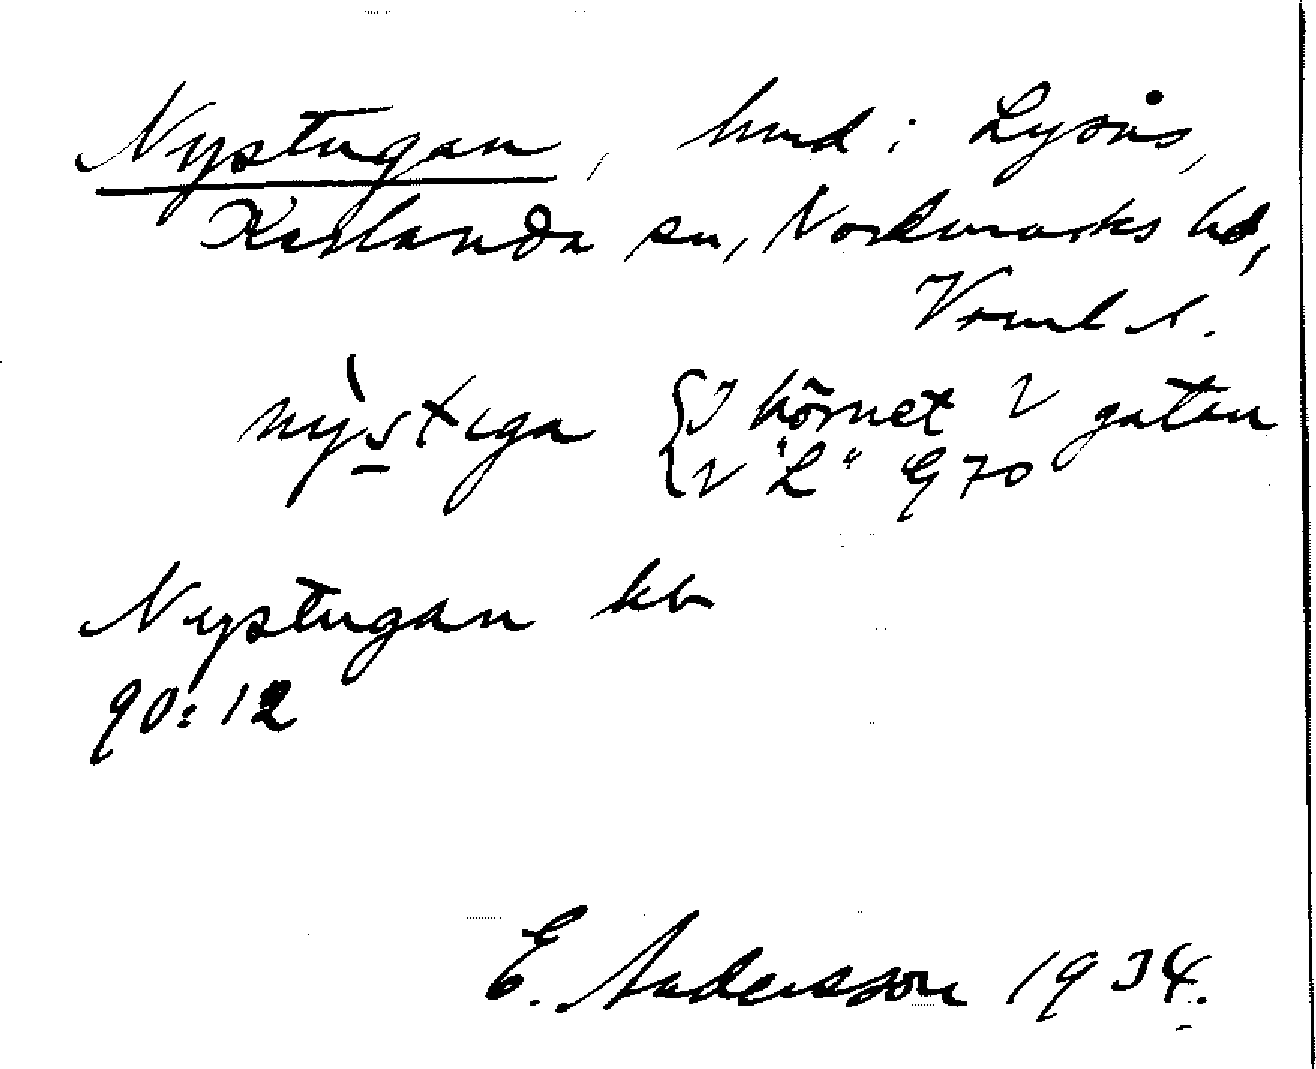 Nystugan, hmd i Lysås,
Karlanda sn, Nordmarks hd,
Vrml l.
nỳstiga { I hörnet v gatan
v "L" G70
Nystugan kb
90:12
E. Andersson 1934.